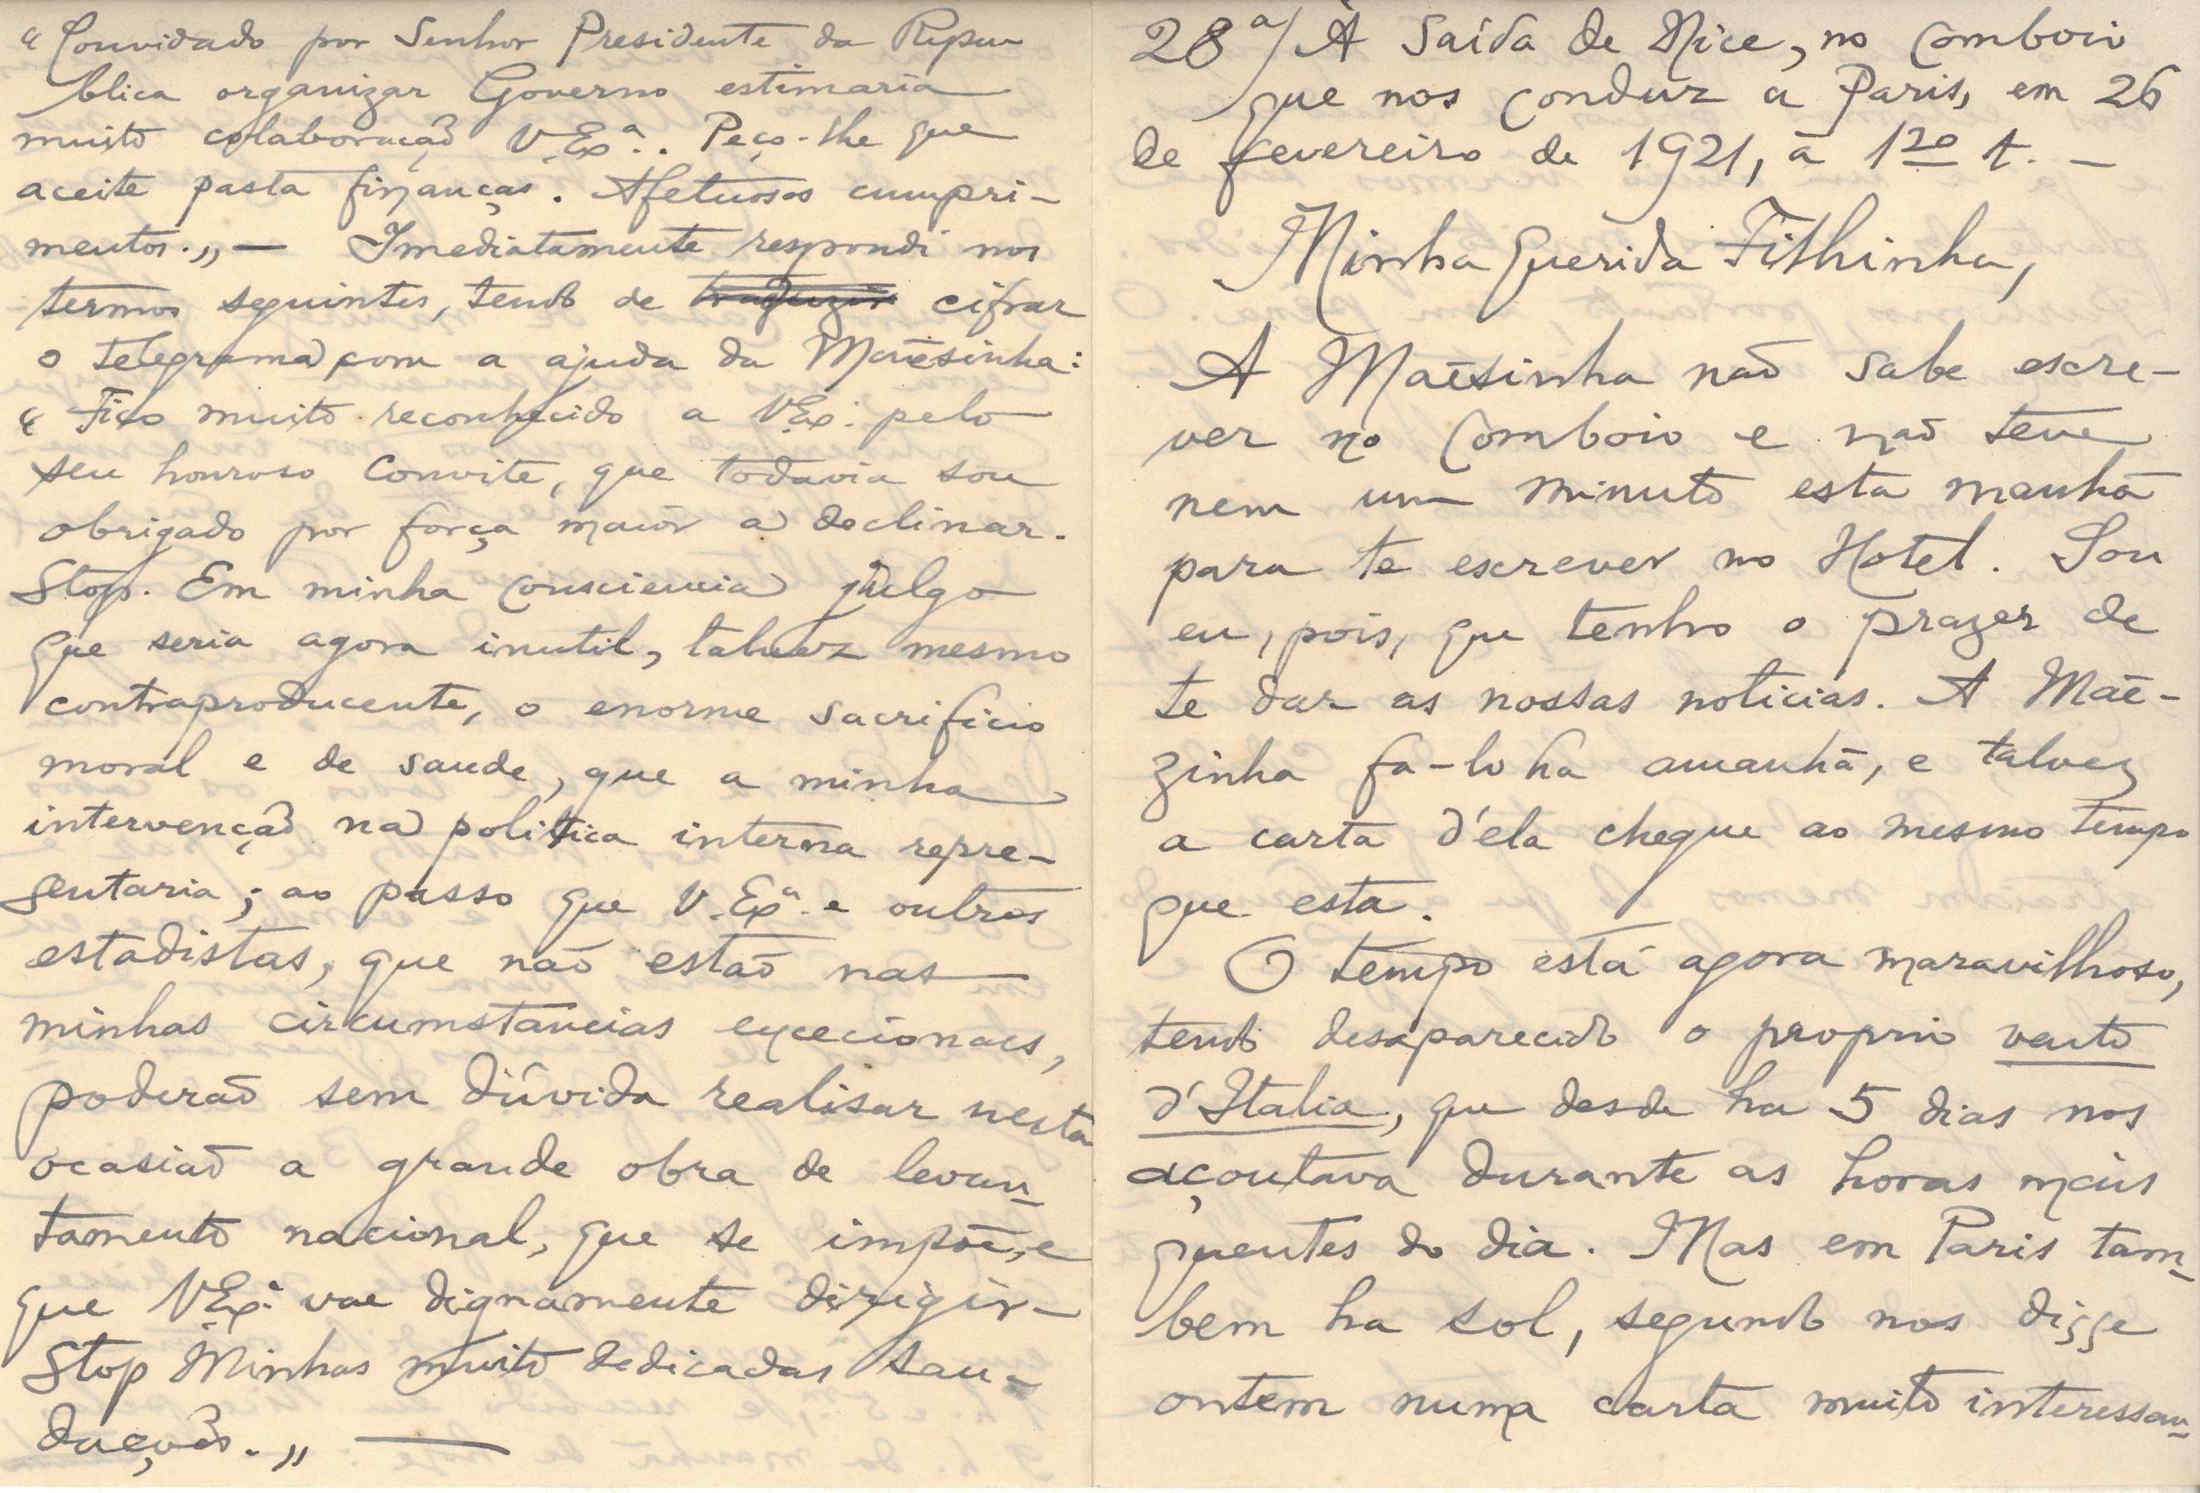 "Convidado por Senhor Presidente da Repu
blica organizar Governo estimaria
muito colaboração V. Exª. Peço-lhe que
aceite pasta finanças. Afetuosos cumpri-
mentos.„ — Imediatamente respondi nos
termos seguintes, tendo de traduzir cifrar
o telegrama com a ajuda da Mãesinha:
"Fico muito reconhecido a V. Ex. pelo
seu honroso convite, que todavia sou
obrigado por força maior a declinar.
Stop. Em minha consciencia julgo
que seria agora inutil, talvez mesmo
contraproducente, o enorme sacrificio
moral e de saude, que a minha
intervenção na politica interna repre-
sentaria; ao passo que V. Exª. e outros
estadistas, que não estão nas
minhas circumstancias excecionaes,
poderão sem dúvida realisar nesta
ocasião a grande obra de levan-
tamento nacional, que se impõe, e
que V. Exª. vae dignamente dirigir-
Stop Minhas muito dedicadas sau-
dações.„ —
28ª/ À Saída de Nice, no comboio
que nos conduz a Paris, em 26
de fevereiro de 1921, á 1 20 t. —
Minha Querida Filhinha,
A Mãesinha não sabe escre-
ver no comboio e não teve
nem um minuto esta manhã
para te escrever no Hotel. Sou
eu, pois, que tenho o prazer de
te dar as nossas noticias. A Mãe-
zinha fa-lo ha amanhã, e talvez
a carta d'éla chegue ao mesmo tempo
que esta.
O tempo está agora maravilhoso,
tendo desaparecido o proprio vento
d'Italia, que desde ha 5 dias nos
açoutava durante as horas mais
quentes do dia. Mas em Paris tam-
bem ha sol, segundo nos disse
ontem numa carta muito interessan-